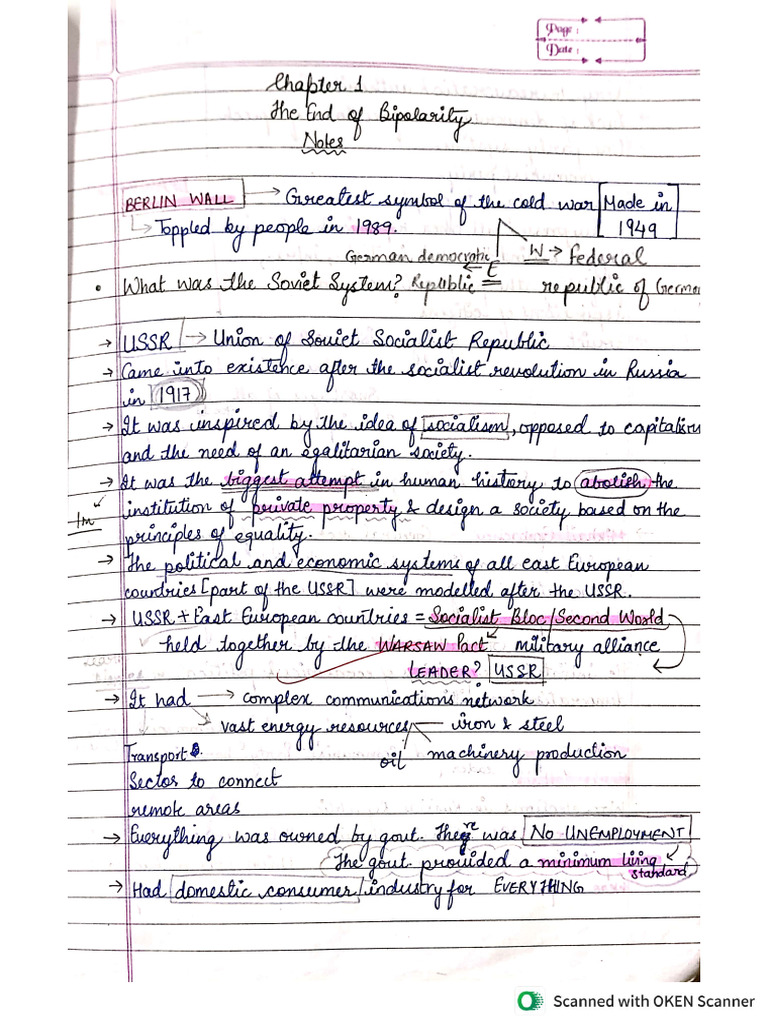 Page :
Date :
Chapter 1
The End of Bipolarity
Notes
BERLIN WALL → Greatest symbol of the cold war Made in 1949
↳ Toppled by people in 1989.
German democratic Republic ← E W → federal republic of Germa
• What was the Soviet System?
→ USSR → Union of Soviet Socialist Republic
→ Came into existence after the socialist revolution in Russia
in 1917
→ It was inspired by the idea of socialism, opposed to capitalism
and the need of an egalitarian society.
→ It was the biggest attempt in human history to abolish the
1m institution of private property & design a society based on the
principles of equality.
→ The political and economic systems of all east European
countries [part of the USSR] were modelled after the USSR.
→ USSR + East European countries = Socialist Bloc/Second World
held together by the WARSAW Pact military alliance
LEADER? USSR
→ It had → complex communications network
→ vast energy resources — iron & steel
oil machinery production
Transport
Sector to connect
remote areas
→ Everything was owned by govt. There was NO UNEMPLOYMENT
The govt. provided a minimum living
standard
→ Had domestic consumer industry for EVERYTHING
Scanned with OKEN Scanner